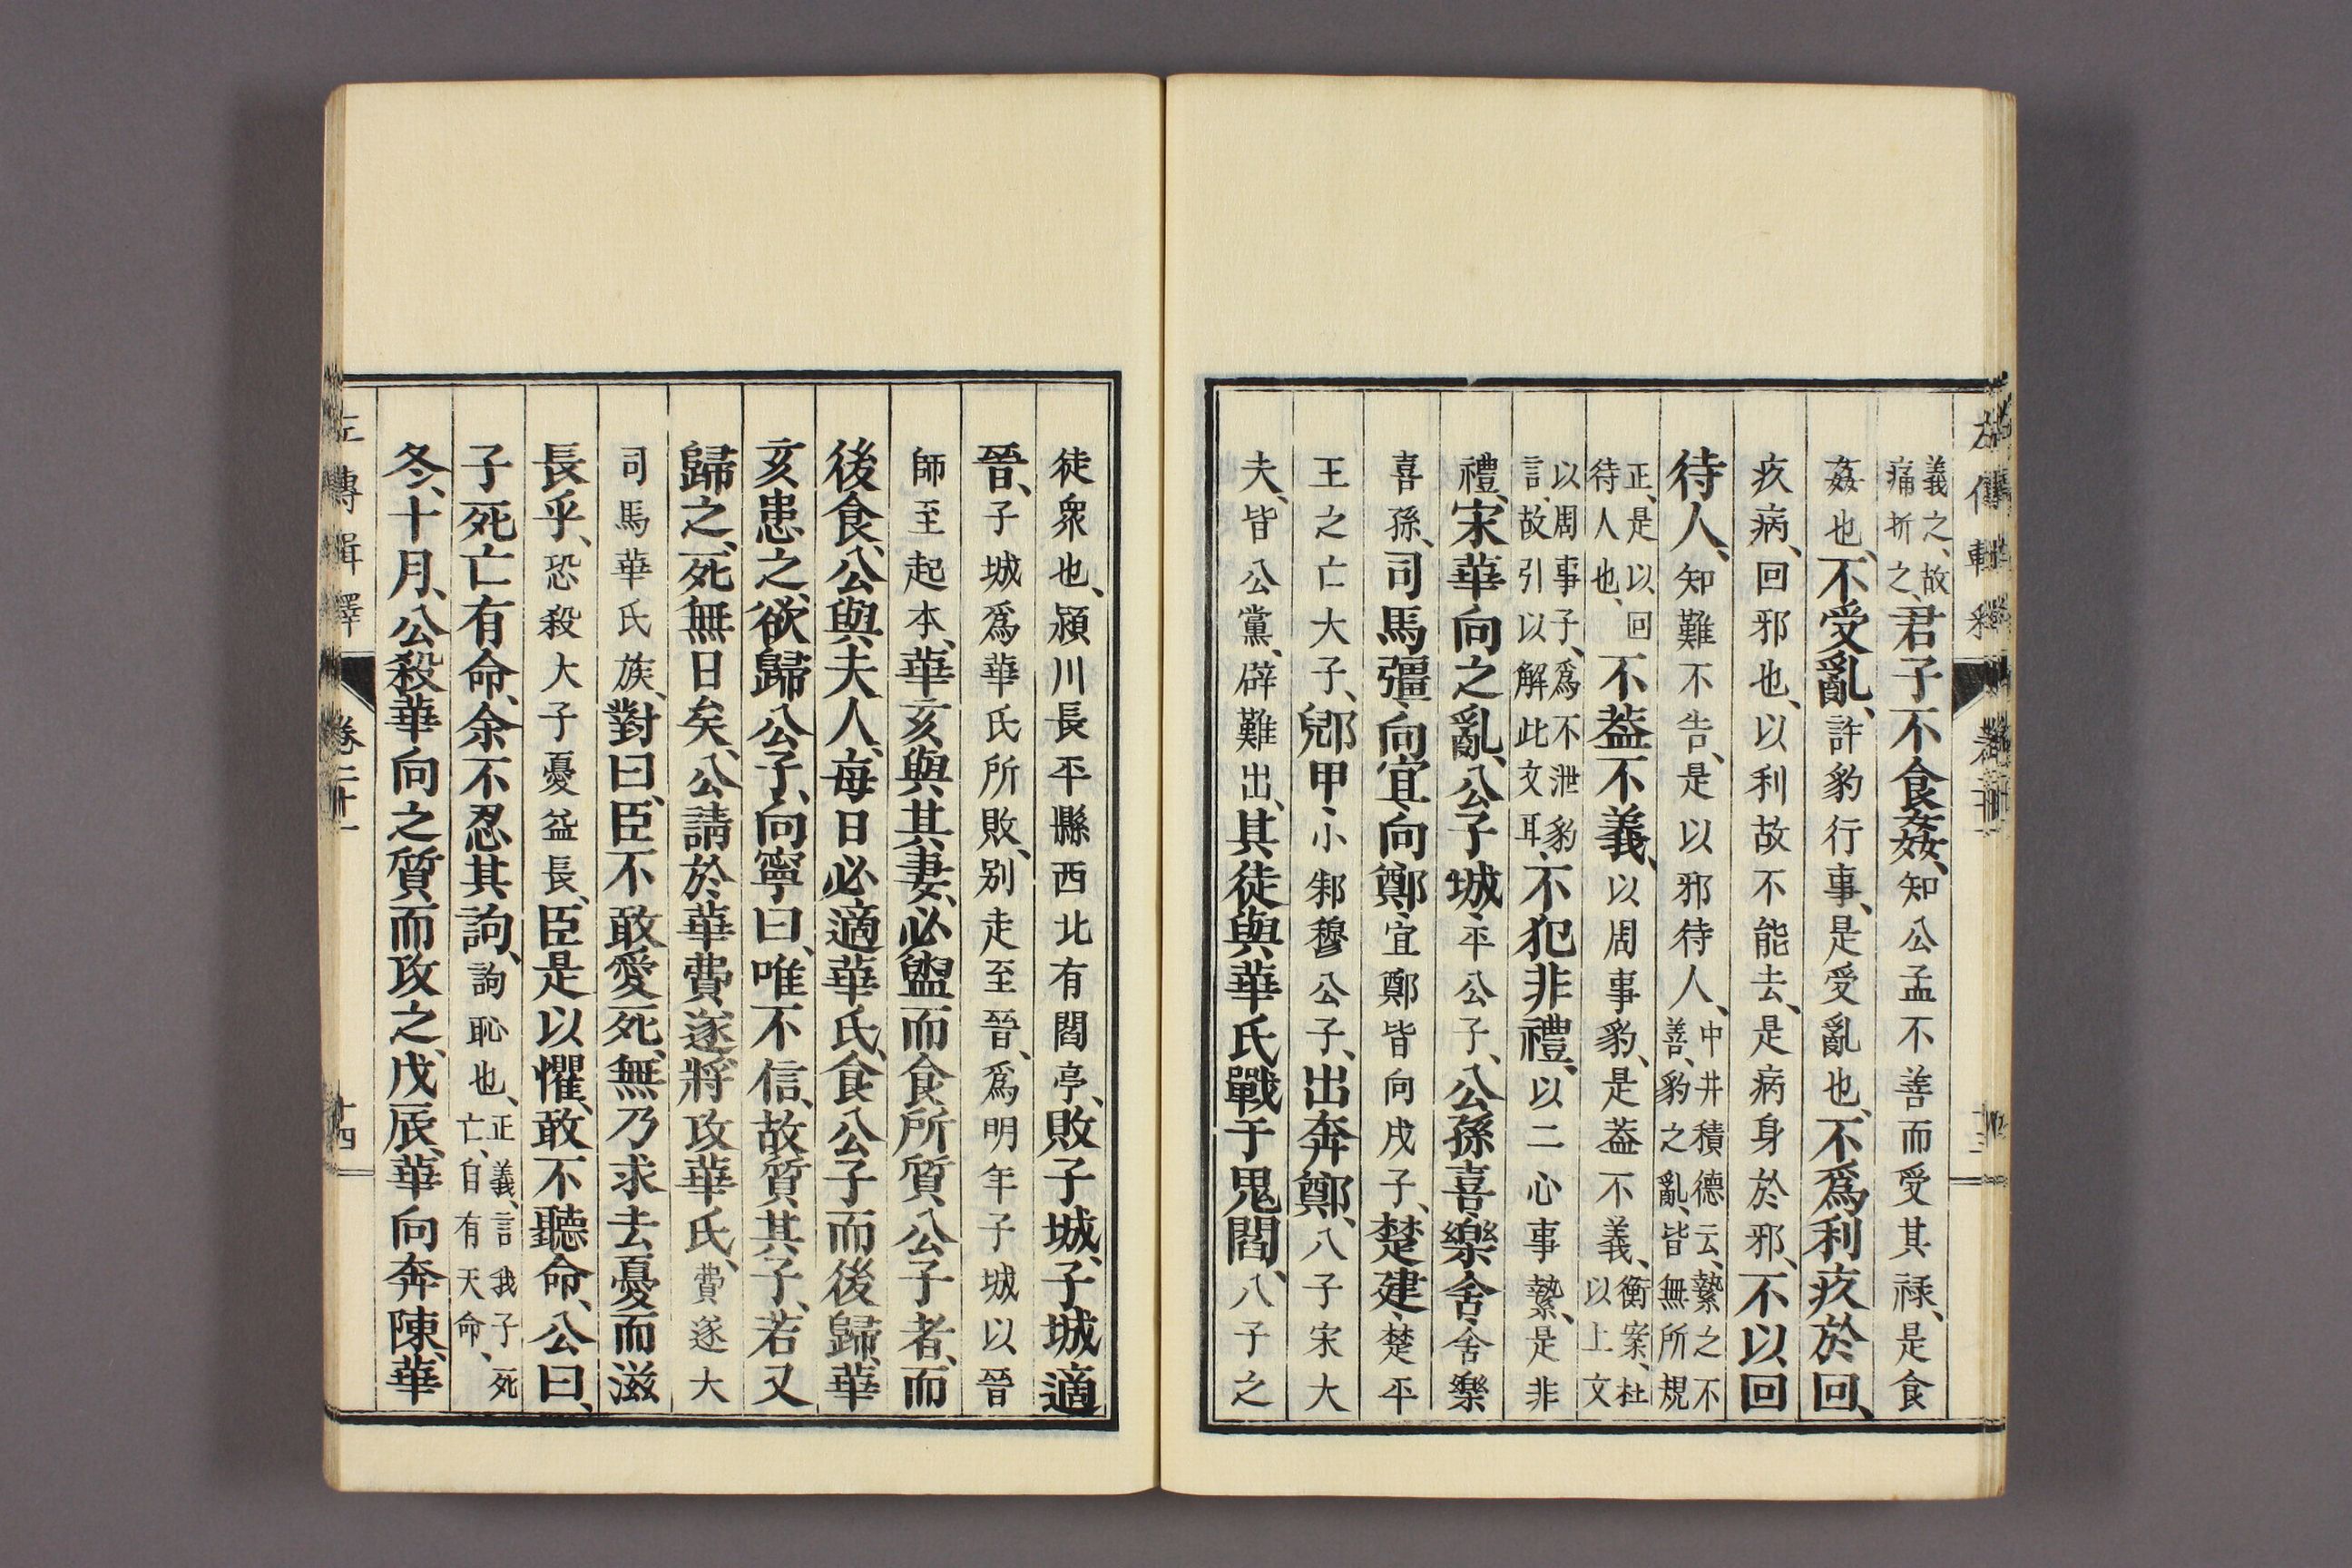 義之、故痛折之、君子不食姦、知公孟不善而受其祿、是食
姦也、不受亂、許豹行事、是受亂也、不爲利疚於回、
疚病、回邪也、以利故不能去、是病身於邪、不以回
待人、知難不告、是以邪待人、中井積德云、縶之不善、豹之亂、皆無所規
正、是以回待人也、不葢不義、以周事豹、是葢不義、衡案、杜以上文
以周事子、爲不泄豹言、故引以解此文耳、不犯非禮、以二心事縶、是非
禮、宋華向之亂、公子城、平公子、公孫喜、樂舍、舍樂
喜孫、司馬彊、向宜、向鄭、宜鄭皆向戌子、楚建、楚平
王之亡大子、郳甲、小邾穆公子、出奔鄭、八子宋大
夫、皆公黨、辟難出、其徒與華氏戰于鬼閻、八子之
徒衆也、潁川長平縣西北有閻亭、敗子城、子城適
晉、子城爲華氏所敗、别走至晉、爲明年子城以晉
師至起本、華亥與其妻、必盥而食所質公子者、而
後食、公與夫人、每日必適華氏、食公子而後歸、華
亥患之、欲歸公子、向寧曰、唯不信、故質其子、若又
歸之、死無日矣、公請於華費遂、將攻華氏、費遂大
司馬華氏族、對曰、臣不敢愛死、無乃求去憂而滋
長乎、恐殺大子憂益長、臣是以懼、敢不聽命、公曰、
子死亡有命、余不忍其訽、訽恥也、正義、言我子死亡、自有天命、
冬、十月、公殺華向之質而攻之、戊辰、華向奔陳、華
左傳輯釋 卷二十一 十四